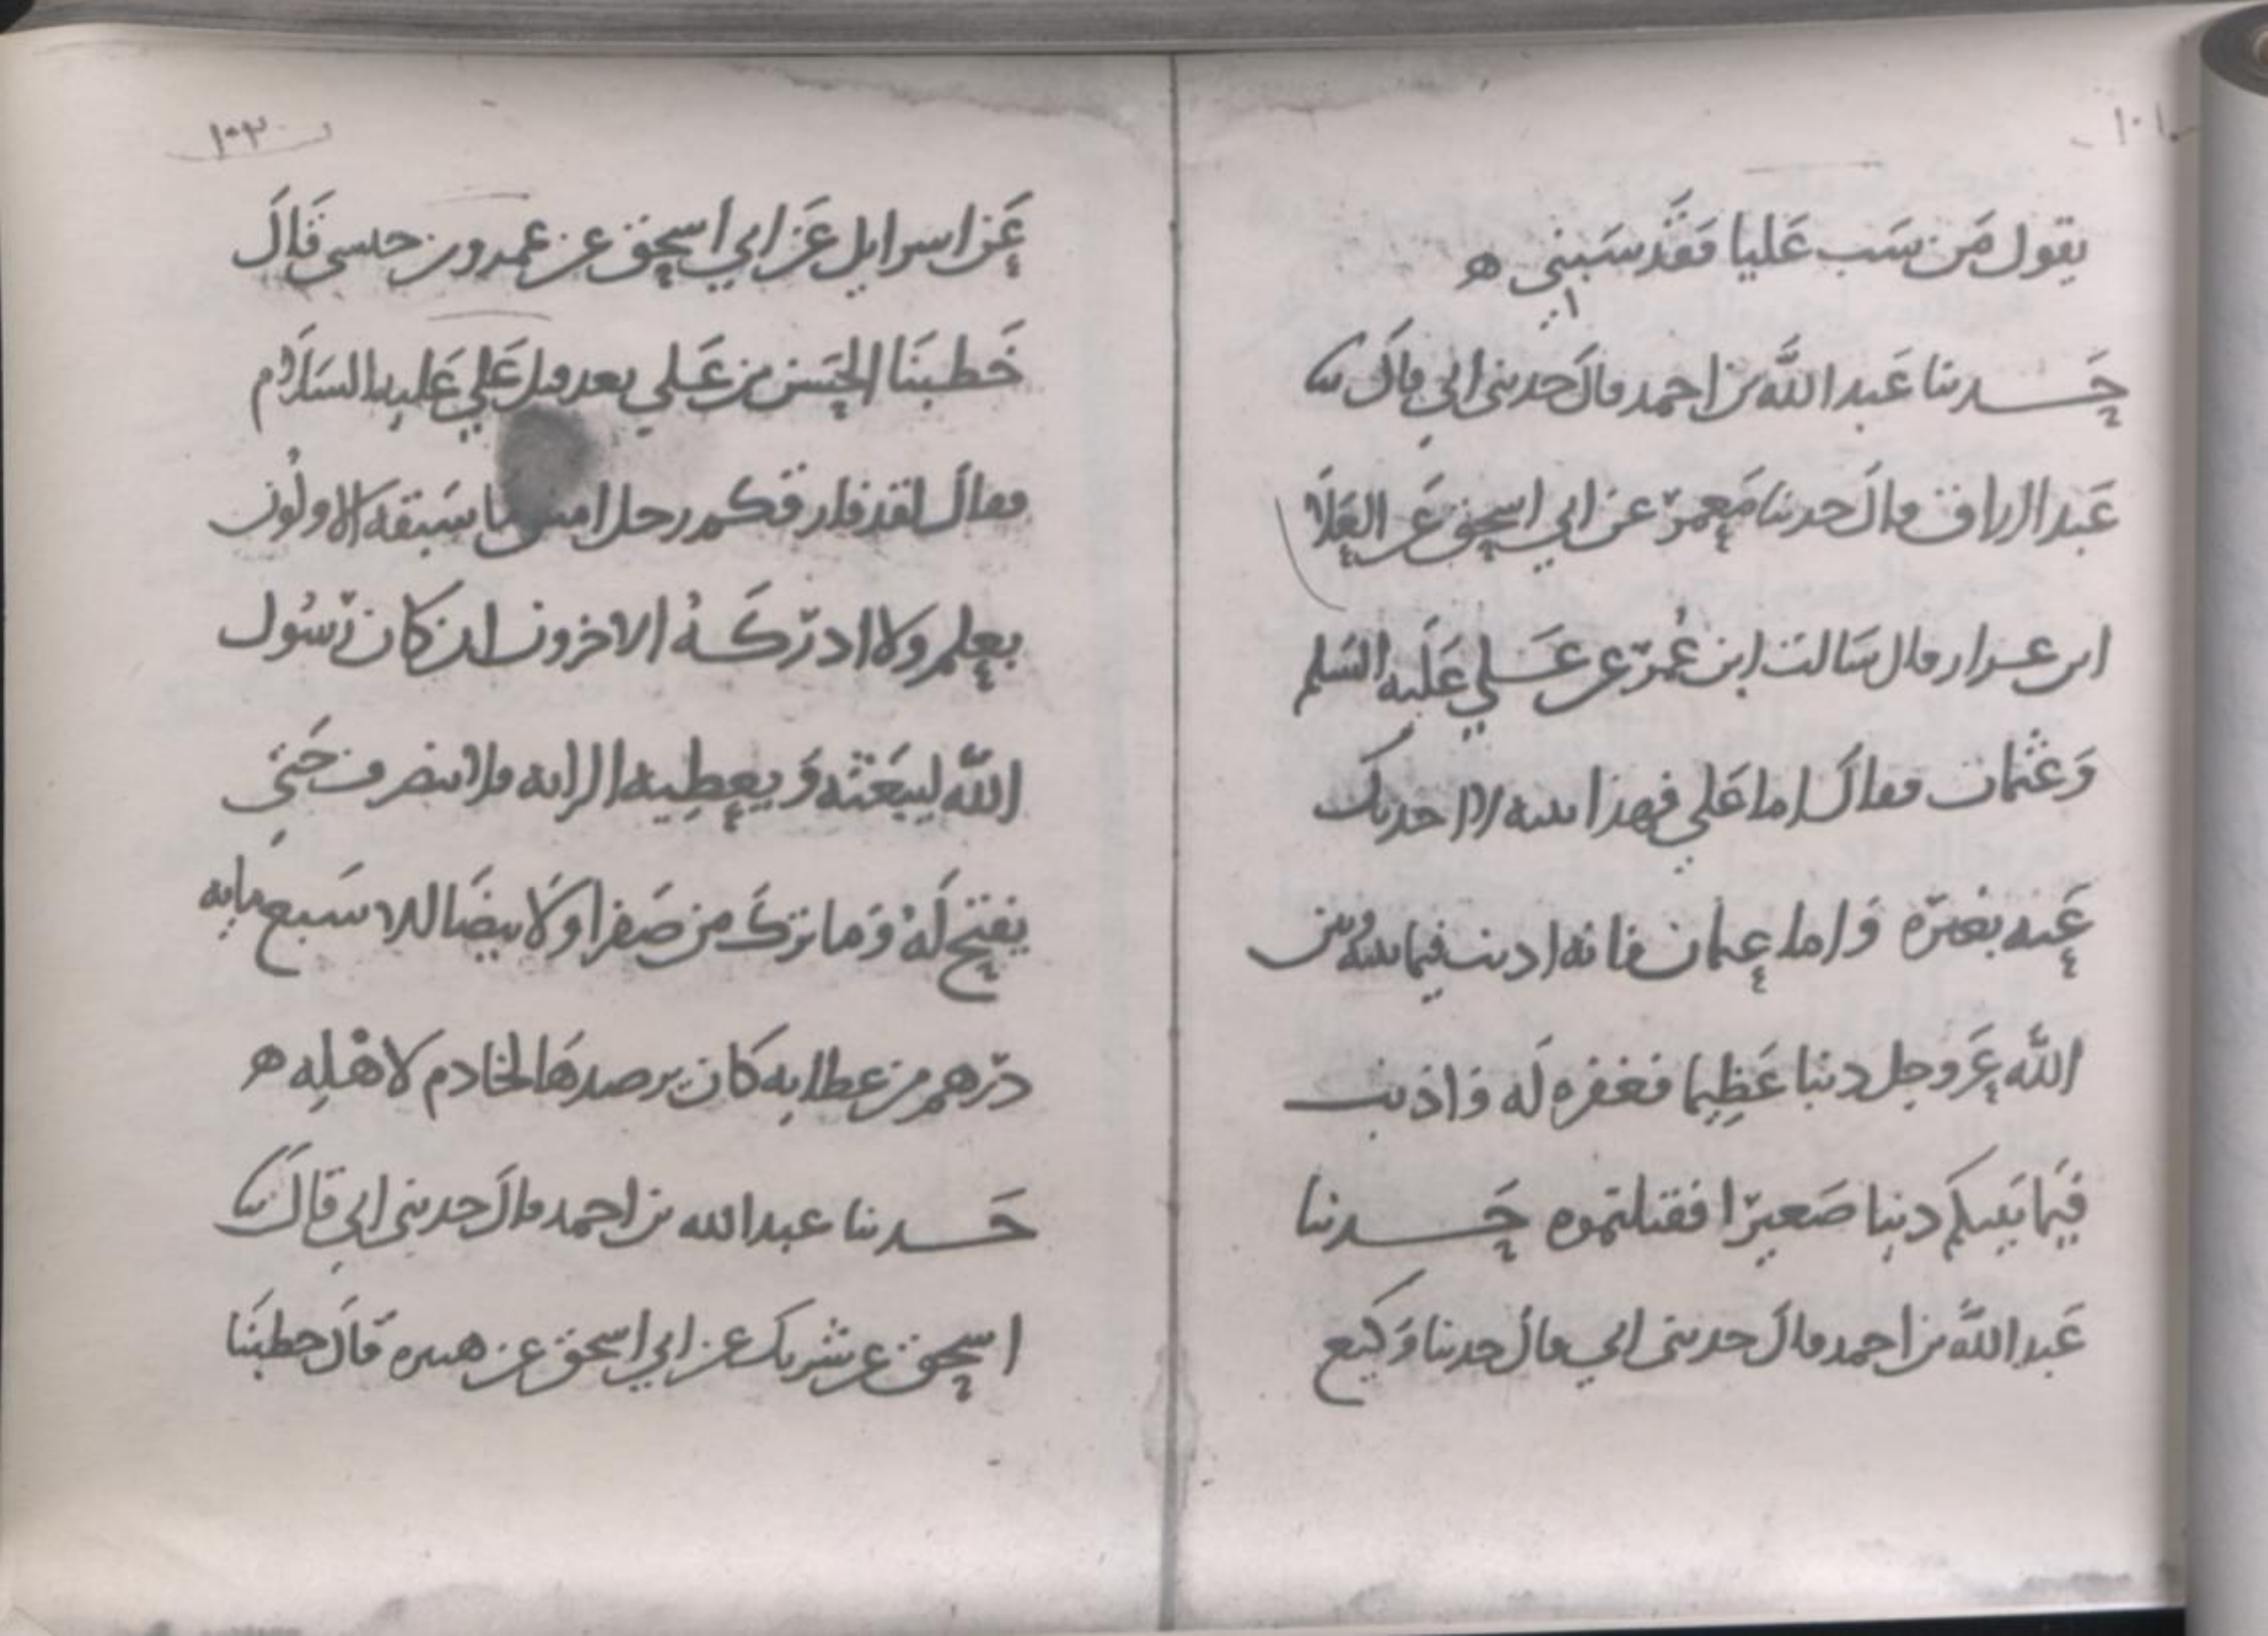 ١٠١
يقول مَن سَب عَليا فقَد سَبني ه
حَدثنا عَبد اللَّه بن احمد قالَ حدثنى ابي قاَل ثنا
عَبد الرزاق قالَ حدثنا مَعمر عن ابي اسحق عَن العَلَا
ابن عرار قال سَالت ابن عُمر عن عَلي عَليه السَلم
وَعثمان فقالَ اما عَلي فهذا بيته لا احدثك
عَنه بغيره وَاما عثمان فانه اذنب فيما بينه وبين
اللَّه عَز وجل ذنبا عَظِيما فغفره لَه وَاذنب
فيَما بَينكم ذنبا صَغيرا فقتلتموه حَدثنا
عَبد اللَّه بن احمد قالَ حدثنى ابي قال حدثنا وَكيع
١٠٢
عَن اسرايل عَن ابي اسحق عن عمرو بن حبشى قَالَ
خَطبنَا الحسَن بن عَلي بعد قتل عَلي عَليه السَلَام
فقالَ لقد فارقكم رجل امس ما سَبقه الاولُون
بعلم ولا ادرَكَهُ الاخرون ان كان رَسُول
اللَّه ليبعَثه وَيعطِيه الرايه فلا ينصرف حَتى
يفتح لَهُ وَما تركَ من صَفرا وَلَا بيضَا الا سَبع مايه
درهم من عطايه كَان يرصدهَا لخادم لاهْلِه ه
حَدثنا عبد الله بن احمد قالَ حدثنى ابي قالَ ثنا
اسحق عن شريك عن ابي اسحق عن هبيره قَالَ خطبنَا